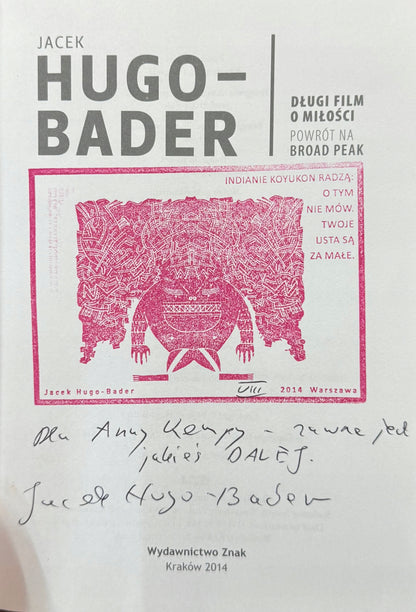 JACEK
HUGO–
BADER
DŁUGI FILM
O MIŁOŚCI
POWRÓT NA
BROAD PEAK
INDIANIE KOYUKON RADZĄ:
O TYM
NIE MÓW.
TWOJE
USTA SĄ
ZA MAŁE.
Jacek Hugo-Bader VIII 2014 Warszawa
Dla Anny Kempy – zawsze jest
jakieś DALEJ.
Jacek Hugo-Bader
Wydawnictwo Znak
Kraków 2014